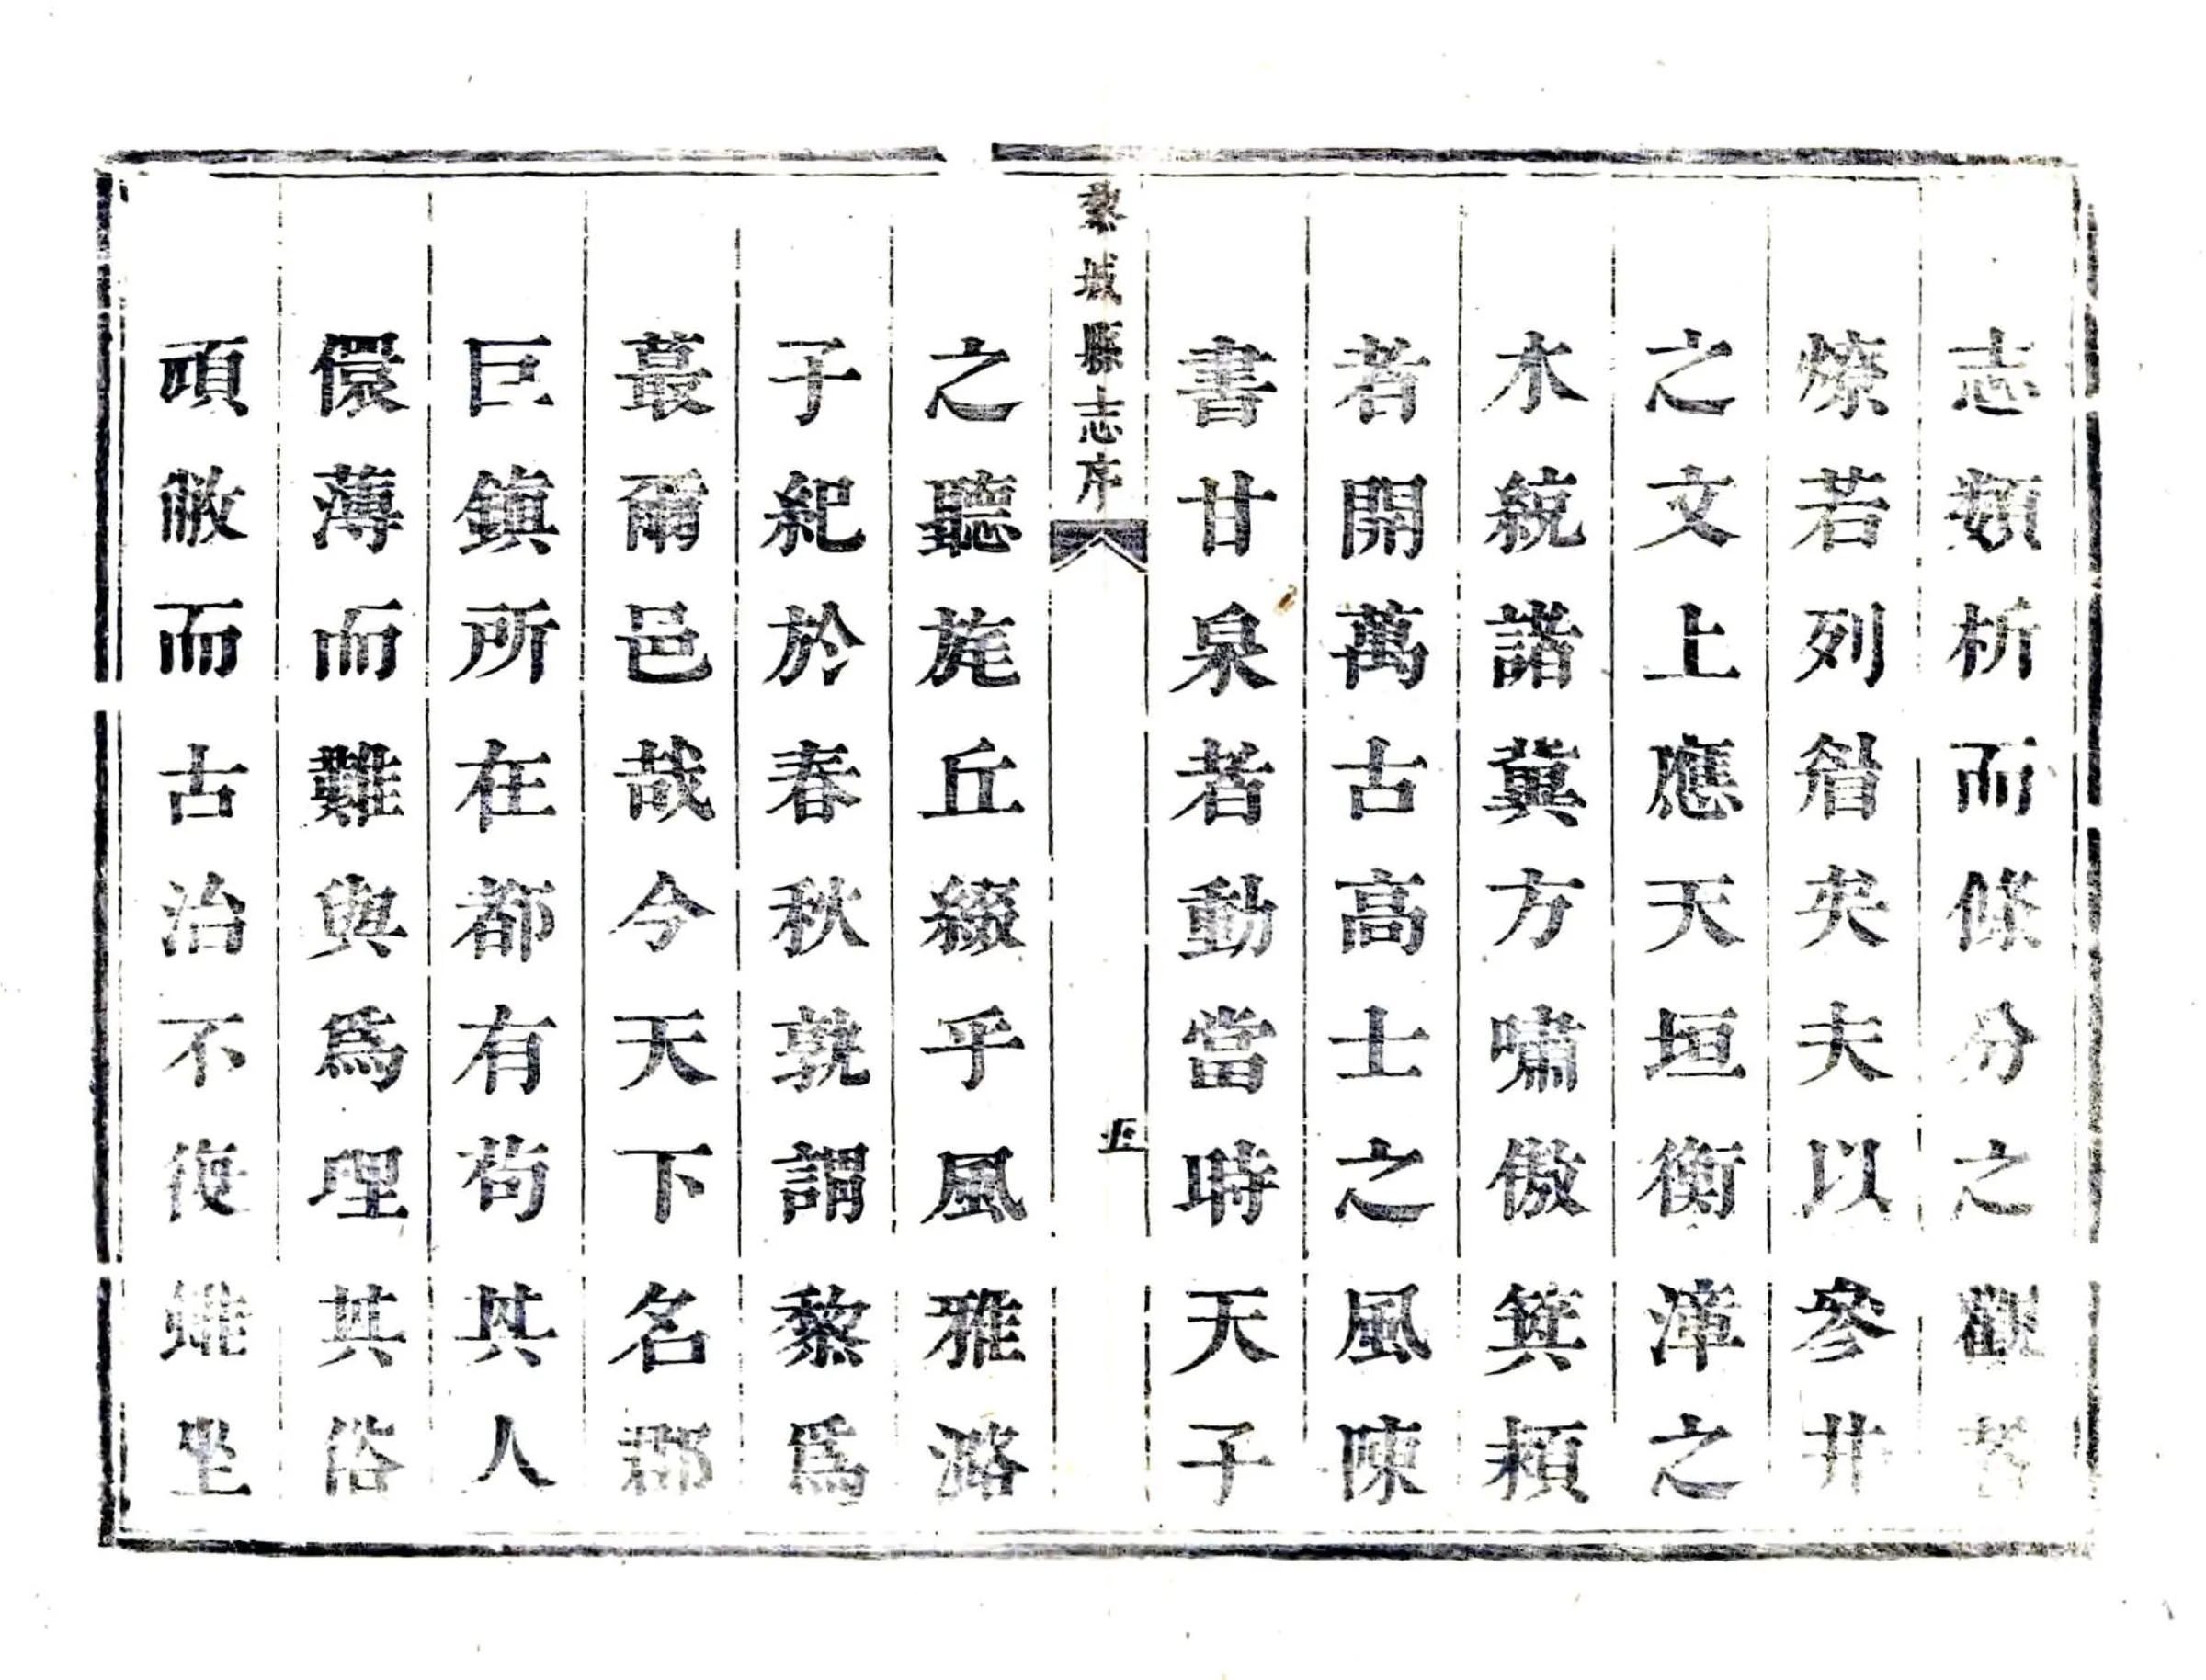 志類析而條分之觀者
燎若列眉矣夫以參井
之文上應天垣衡漳之
水統諸冀方嘯傲箕潁
者開萬古高士之風陳
書甘泉者動當時天子
黎城縣志序
五
之聽旄丘綴乎風雅潞
子紀於春秋孰謂黎爲
蕞爾邑哉今天下名郡
巨鎮所在都有苟其人
儇薄而難與爲理其俗
頑敝而古治不復雖坐